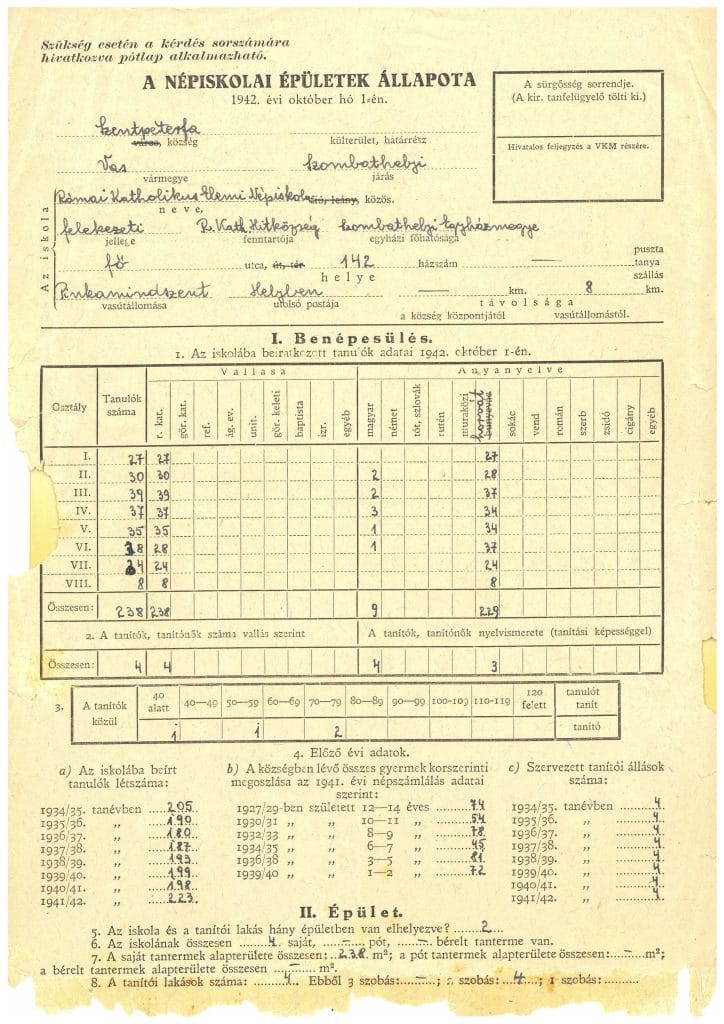 Szükség esetén a kérdés sorszámára
hivatkozva pótlap alkalmazható.
A NÉPISKOLAI ÉPÜLETEK ÁLLAPOTA
1942. évi október hó 1-én.
A sürgősség sorrendje.
(A kir. tanfelügyelő tölti ki.)
Hivatalos feljegyzés a VKM részére.
Szentpéterfa
város, község külterület, határrész
Vas Szombathelyi
vármegye járás
Az iskola
Római Katholikus Elemi Népiskola fiú, leány, közös.
neve,
felekezeti R. Kath. Hitközség Szombathelyi Egyházmegye
jellege fenntartója egyházi főhatósága
fő utca, út, tér 142 házszám — puszta tanya szállás
helye
Pinkamindszent Helyben — km. 8 km.
vasútállomása utolsó postája távolsága
a község központjától vasútállomástól.
I. Benépesülés.
1. Az iskolába beiratkozott tanulók adatai 1942. október 1-én.
Osztály Tanulók száma Vallása Anyanyelve
r. kat. gör. kat. ref. ág. ev. unit. gör. keleti baptista izr. egyéb magyar német tót, szlovák rutén muraközi horvát bunyevác sokác vend román szerb zsidó cigány egyéb
I. 27 27 27
II. 30 30 2 28
III. 39 39 2 37
IV. 37 37 3 34
V. 35 35 1 34
VI. 38 28 1 37
VII. 24 24 24
VIII. 8 8 8
Összesen: 238 238 9 229
2. A tanítók, tanítónők száma vallás szerint A tanítók, tanítónők nyelvismerete (tanítási képességgel)
Összesen: 4 4 4 3
3. A tanítók közül 40 alatt 40—49 50—59 60—69 70—79 80—89 90—99 100-109 110-119 120 felett tanulót tanít
1 1 2 tanító
4. Előző évi adatok.
a) Az iskolába beírt tanulók létszáma:
1934/35. tanévben 205
1935/36. „ 190
1936/37. „ 180
1937/38. „ 187
1938/39. „ 193
1939/40. „ 199
1940/41. „ 198
1941/42. „ 223
b) A községben lévő összes gyermek korszerinti
megoszlása az 1941. évi népszámlálás adatai
szerint:
1927/29-ben született 12—14 éves 74
1930/31 „ „ 10—11 „ 54
1932/33 „ „ 8—9 „ 78
1934/35 „ „ 6—7 „ 45
1936/38 „ „ 3—5 „ 81
1939/40 „ „ 1—2 „ 72
c) Szervezett tanítói állások
száma:
1934/35. tanévben 4
1935/36. „ 4
1936/37. „ 4
1937/38. „ 4
1938/39. „ 4
1939/40. „ 4
1940/41. „ 4
1941/42. „ 4
II. Épület.
5. Az iskola és a tanítói lakás hány épületben van elhelyezve? 2
6. Az iskolának összesen 4 saját, — pót, — bérelt tanterme van.
7. A saját tantermek alapterülete összesen: 238 m²; a pót tantermek alapterülete összesen: — m²;
a bérelt tantermek alapterülete összesen — m².
8. A tanítói lakások száma: 4 Ebből 3 szobás: —; 2 szobás: 4; 1 szobás: